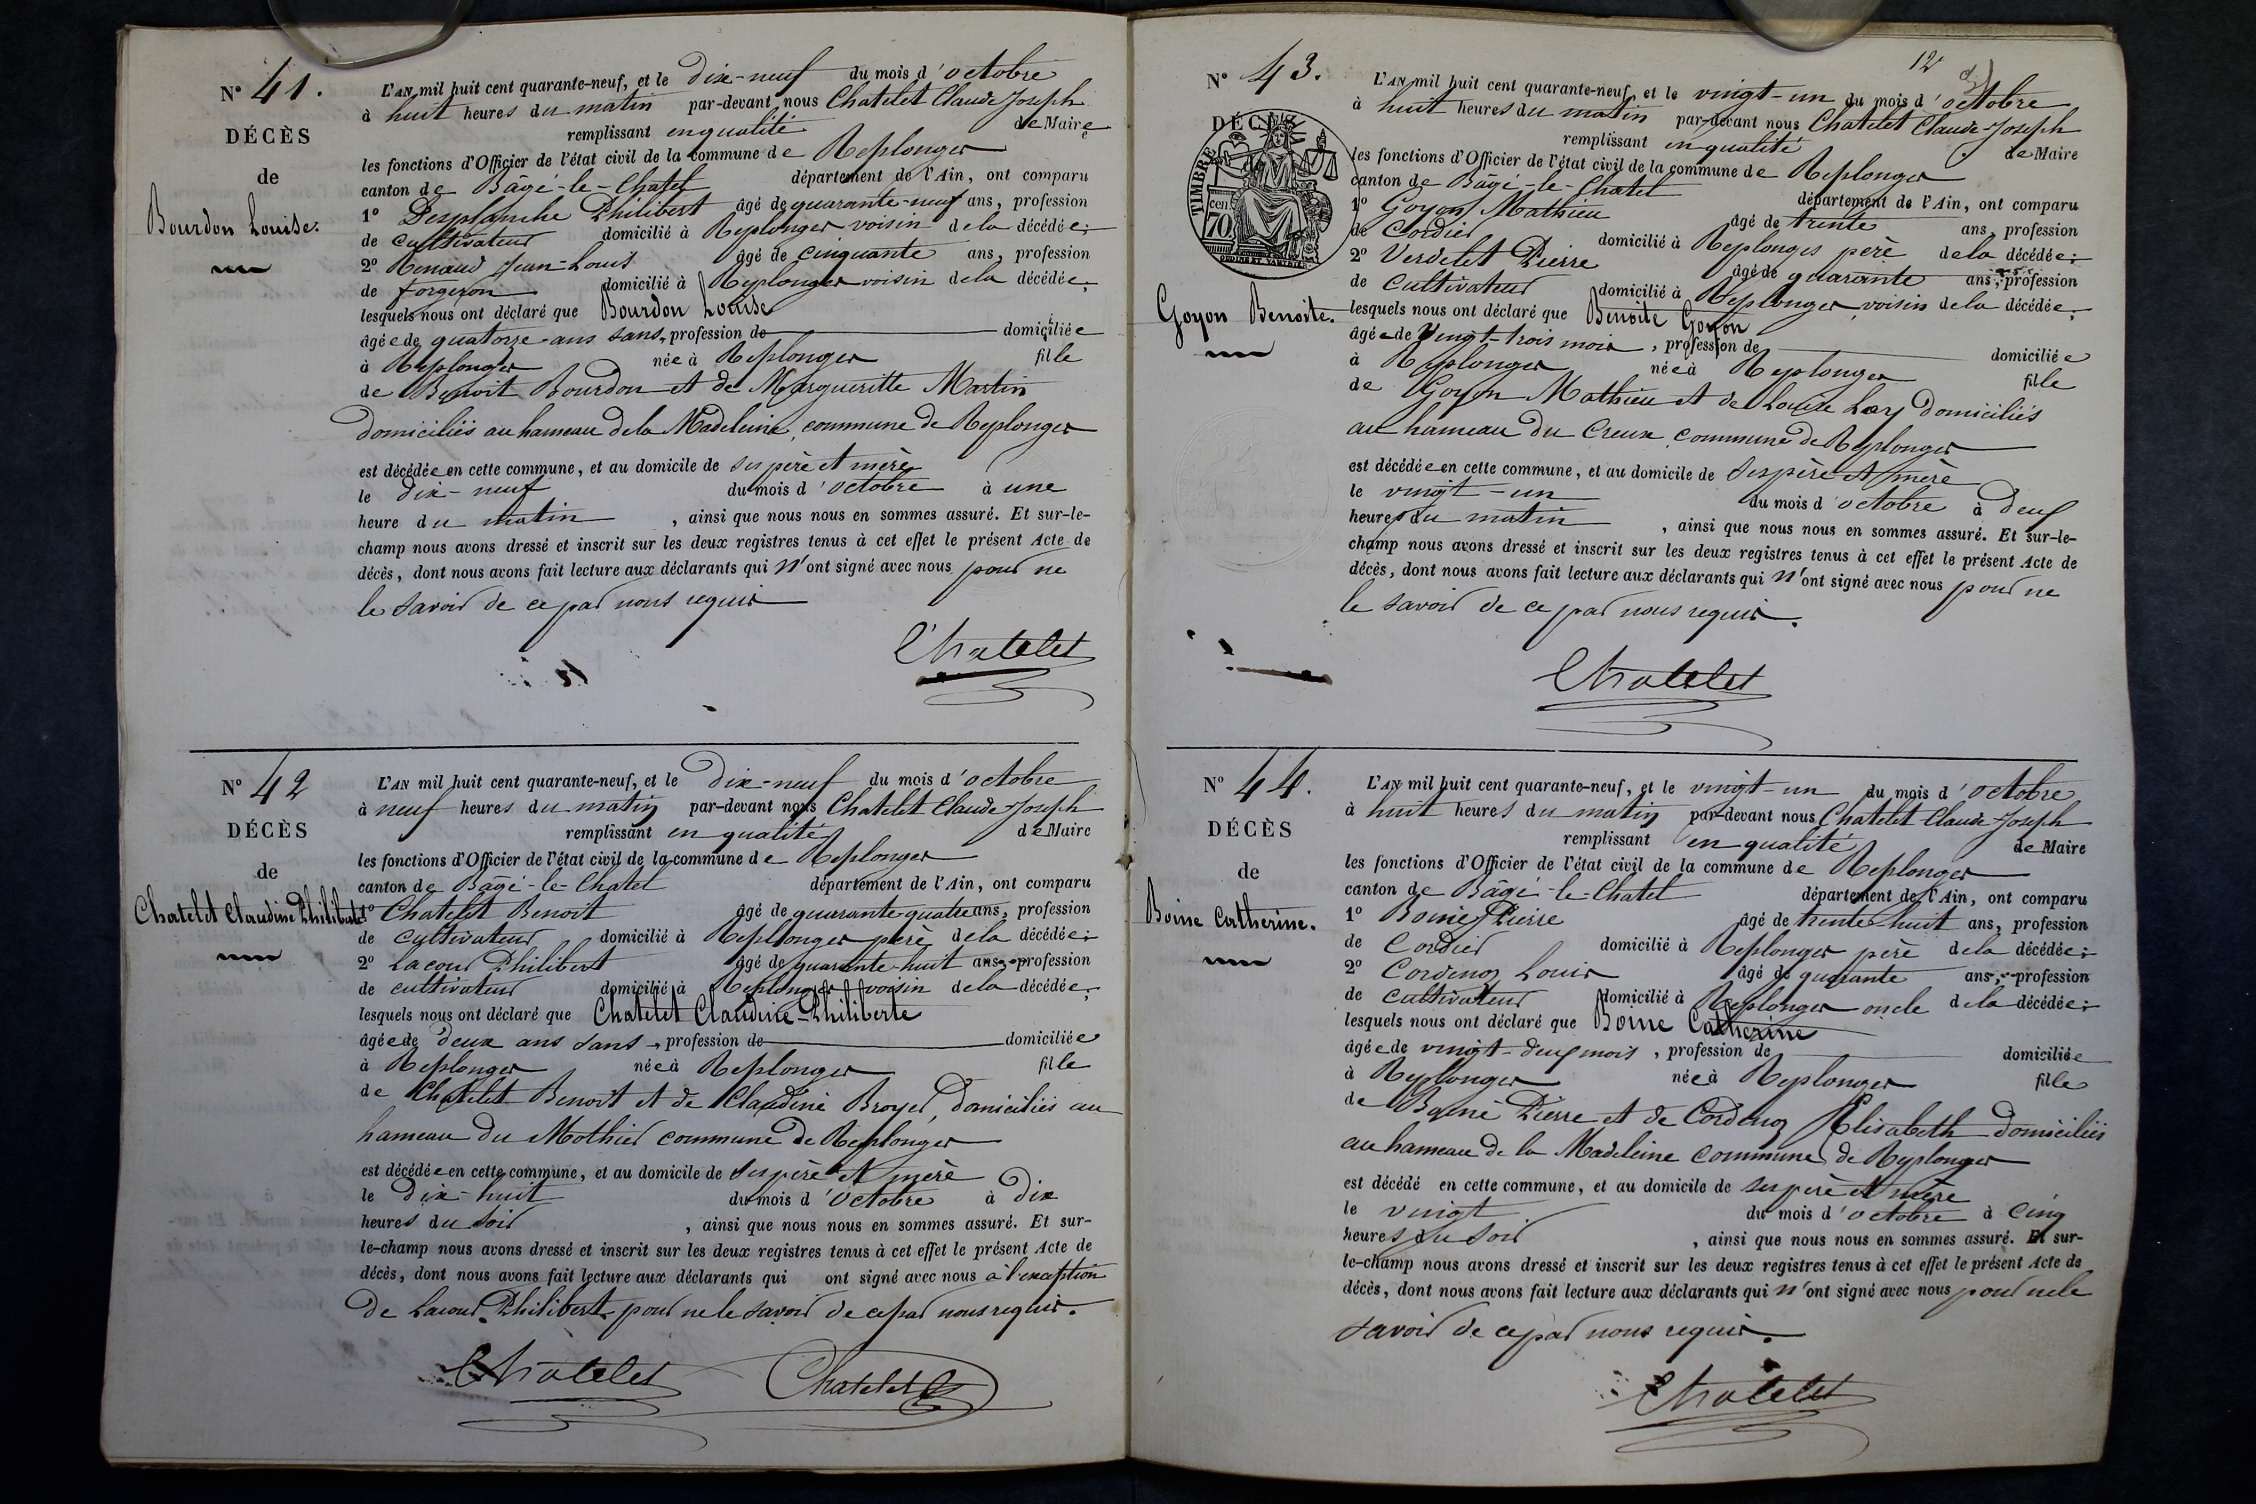 N° 41.
DÉCÈS
de
Bourdon Louise.
L'AN mil huit cent quarante-neuf, et le dix-neuf du mois d'octobre
à huit heures du matin par-devant nous Chatelet Claude Joseph
remplissant en qualité de Maire
les fonctions d'Officier de l'état civil de la commune de Replonges
canton de Bâgé-le-Chatel département de l'Ain, ont comparu
1° Desplanche Philibert âgé de quarante-neuf ans, profession
de cultivateur domicilié à Replonges voisin de la décédée;
2° Renaud Jean-Louis âgé de cinquante ans, profession
de forgeron domicilié à Replonges voisin de la décédée;
lesquels nous ont déclaré que Bourdon Louise
âgée de quatorze ans sans, profession de domiciliée
à Replonges née à Replonges fille
de Benoit Bourdon et de Margueritte Martin
domiciliés au hameau de la Madeleine, commune de Replonges
est décédée en cette commune, et au domicile de ses père et mère
le dix-neuf du mois d'octobre à une
heure du matin, ainsi que nous nous en sommes assuré. Et sur-le-
champ nous avons dressé et inscrit sur les deux registres tenus à cet effet le présent Acte de
décès, dont nous avons fait lecture aux déclarants qui n'ont signé avec nous pour ne
le savoir de ce par nous requis
Chatelet
N° 42
DÉCÈS
de
Chatelet Claudine Philiberte
L'AN mil huit cent quarante-neuf, et le dix-neuf du mois d'octobre
à neuf heures du matin par-devant nous Chatelet Claude-Joseph
remplissant en qualité de Maire
les fonctions d'Officier de l'état civil de la commune de Replonges
canton de Bâgé-le-Chatel département de l'Ain, ont comparu
1° Chatelet Benoit âgé de quarante-quatre ans, profession
de cultivateur domicilié à Replonges père de la décédée;
2° Lacour Philibert âgé de quarante-huit ans, profession
de cultivateur domicilié à Replonges voisin de la décédée;
lesquels nous ont déclaré que Chatelet Claudine-Philiberte
âgée de deux ans sans, profession de domiciliée
à Replonges née à Replonges fille
de Chatelet Benoit et de Claudine Broyer, domiciliés au
hameau du Mothier commune de Replonges
est décédée en cette commune, et au domicile de ses père et mère
le dix-huit du mois d'octobre à dix
heures du soir, ainsi que nous nous en sommes assuré. Et sur-
le-champ nous avons dressé et inscrit sur les deux registres tenus à cet effet le présent Acte de
décès, dont nous avons fait lecture aux déclarants qui ont signé avec nous à l'exception
de Lacour Philibert pour ne le savoir de ce par nous requis.
Chatelet Chatelet
12
N° 43.
DÉCÈS
TIMBRE
70 cent
Goyon Benoite.
L'AN mil huit cent quarante-neuf, et le vingt-un du mois d'octobre
à huit heures du matin par-devant nous Chatelet Claude-Joseph
remplissant en qualité de Maire
les fonctions d'Officier de l'état civil de la commune de Replonges
canton de Bâgé-le-Chatel département de l'Ain, ont comparu
1° Goyon Mathieu âgé de trente ans, profession
de Cordier domicilié à Replonges père de la décédée;
2° Verdelet Pierre âgé de quarante ans, profession
de cultivateur domicilié à Replonges voisin de la décédée;
lesquels nous ont déclaré que Benoite Goyon
âgée de vingt-trois mois, profession de domiciliée
à Replonges née à Replonges fille
de Goyon Mathieu et de Louise Lary domiciliés
au hameau du Creux commune de Replonges
est décédée en cette commune, et au domicile de ses père et mère
le vingt-un du mois d'octobre à deux
heures du matin, ainsi que nous nous en sommes assuré. Et sur-le-
champ nous avons dressé et inscrit sur les deux registres tenus à cet effet le présent Acte de
décès, dont nous avons fait lecture aux déclarants qui n'ont signé avec nous pour ne
le savoir de ce par nous requis.
Chatelet
N° 44.
DÉCÈS
de
Boine Catherine.
L'AN mil huit cent quarante-neuf, et le vingt-un du mois d'octobre
à huit heures du matin par-devant nous Chatelet Claude-Joseph
remplissant en qualité de Maire
les fonctions d'Officier de l'état civil de la commune de Replonges
canton de Bâgé-le-Chatel département de l'Ain, ont comparu
1° Boine Pierre âgé de trente-huit ans, profession
de Cordier domicilié à Replonges père de la décédée;
2° Cordenoz Louis âgé de quarante ans, profession
de cultivateur domicilié à Replonges oncle de la décédée;
lesquels nous ont déclaré que Boine Catherine
âgée de vingt-deux mois, profession de domiciliée
à Replonges née à Replonges fille
de Boine Pierre et de Cordenoz Elisabeth domiciliés
au hameau de la Madeleine commune de Replonges
est décédé en cette commune, et au domicile de ses père et mère
le vingt du mois d'octobre à cinq
heures du soir, ainsi que nous nous en sommes assuré. Et sur-
le-champ nous avons dressé et inscrit sur les deux registres tenus à cet effet le présent Acte de
décès, dont nous avons fait lecture aux déclarants qui n'ont signé avec nous pour ne le
savoir de ce par nous requis.
Chatelet